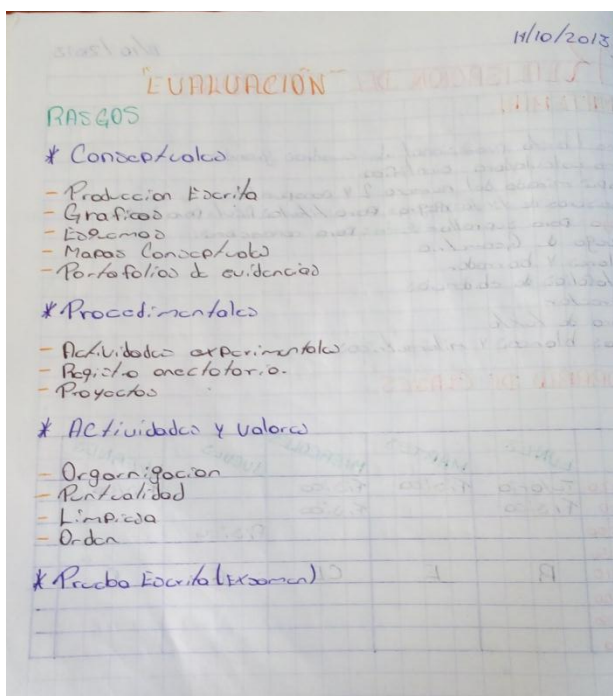 14/10/2013
"EVALUACIÓN"
RASGOS
* Conseptuales
- Produccion Escrita
- Graficos
- Esqemas
- Mapas Conseptuales
- Portafolios de evidencias
* Procedimentales
- Actividades experimentales
- Registro anectotario.
- Proyectos
* Actividades y valores
- Orgarnigacion
- Puntualidad
- Limpieza
- Orden
* Prueba Escrita (Exsamen)